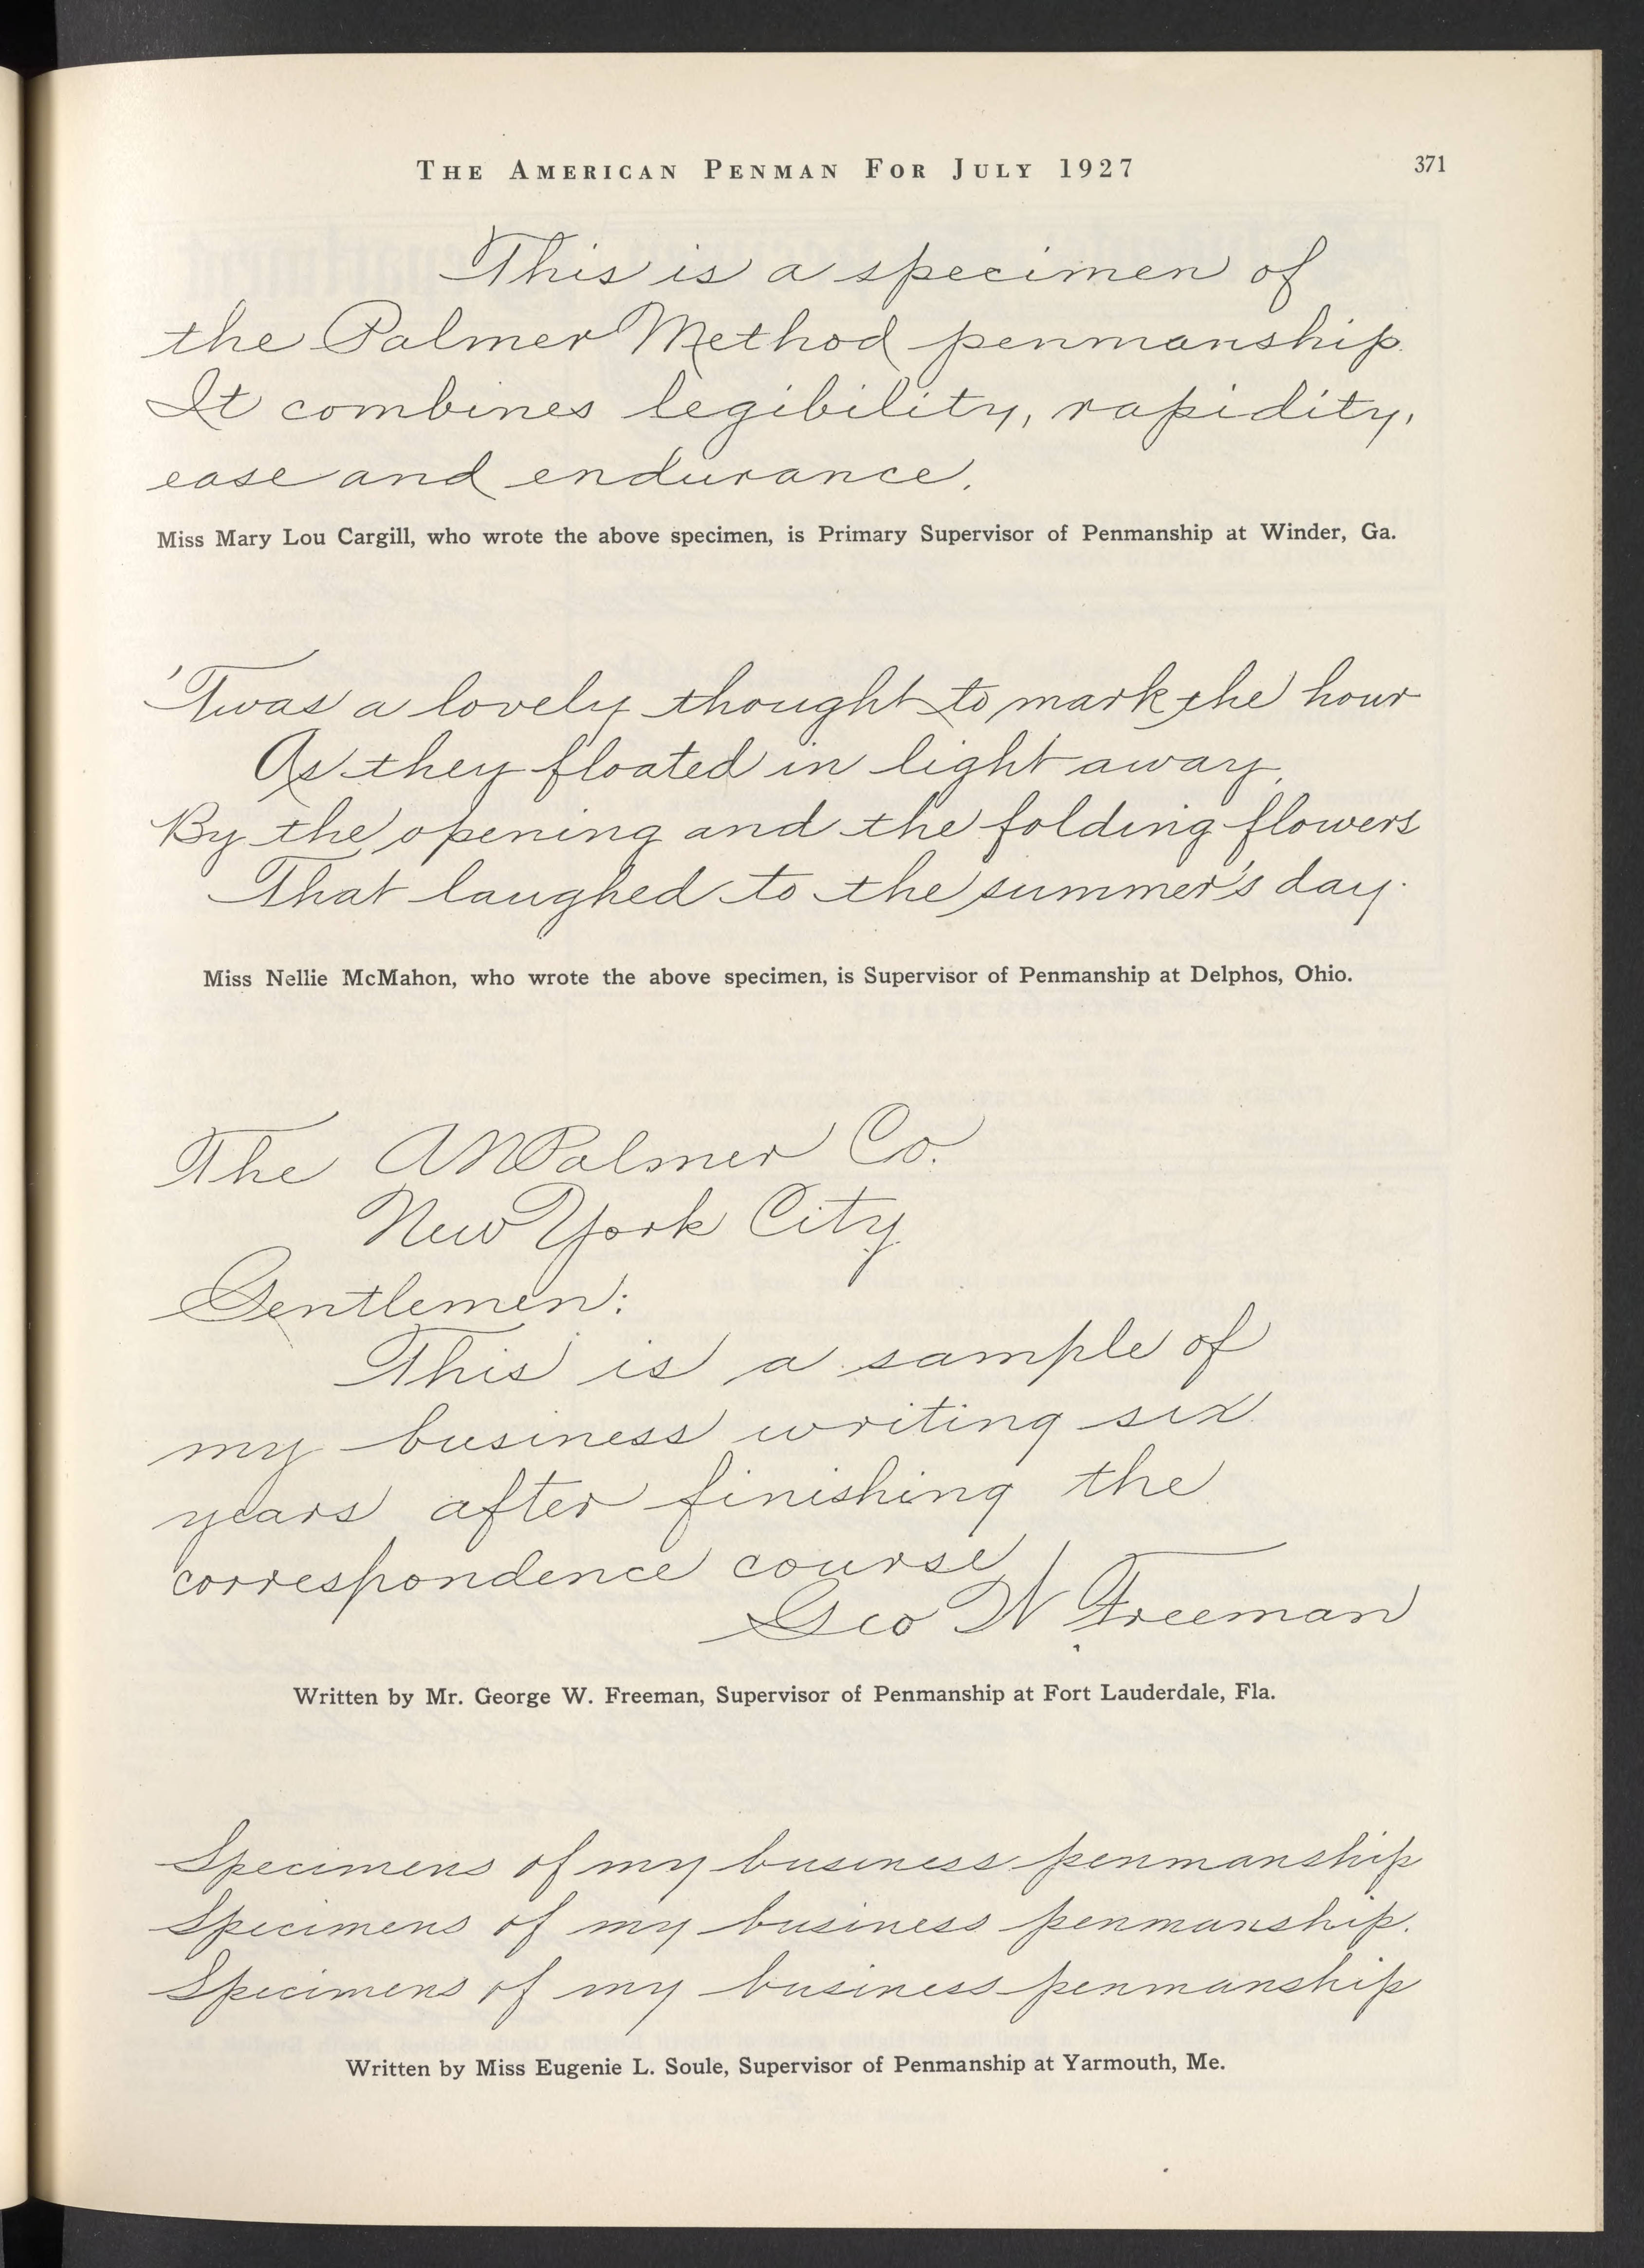 THE AMERICAN PENMAN FOR JULY 1927 371
This is a specimen of
the Palmer Method penmanship.
It combines legibility, rapidity,
ease and endurance.
Miss Mary Lou Cargill, who wrote the above specimen, is Primary Supervisor of Penmanship at Winder, Ga.
'Twas a lovely thought to mark the hour
As they floated in light away,
By the opening and the folding flowers
That laughed to the summer's day.
Miss Nellie McMahon, who wrote the above specimen, is Supervisor of Penmanship at Delphos, Ohio.
The A N Palmer Co.
New York City
Gentlemen:
This is a sample of
my business writing six
years after finishing the
correspondence course
Geo W Freeman
Written by Mr. George W. Freeman, Supervisor of Penmanship at Fort Lauderdale, Fla.
Specimens of my business penmanship
Specimens of my business penmanship.
Specimens of my business penmanship
Written by Miss Eugenie L. Soule, Supervisor of Penmanship at Yarmouth, Me.